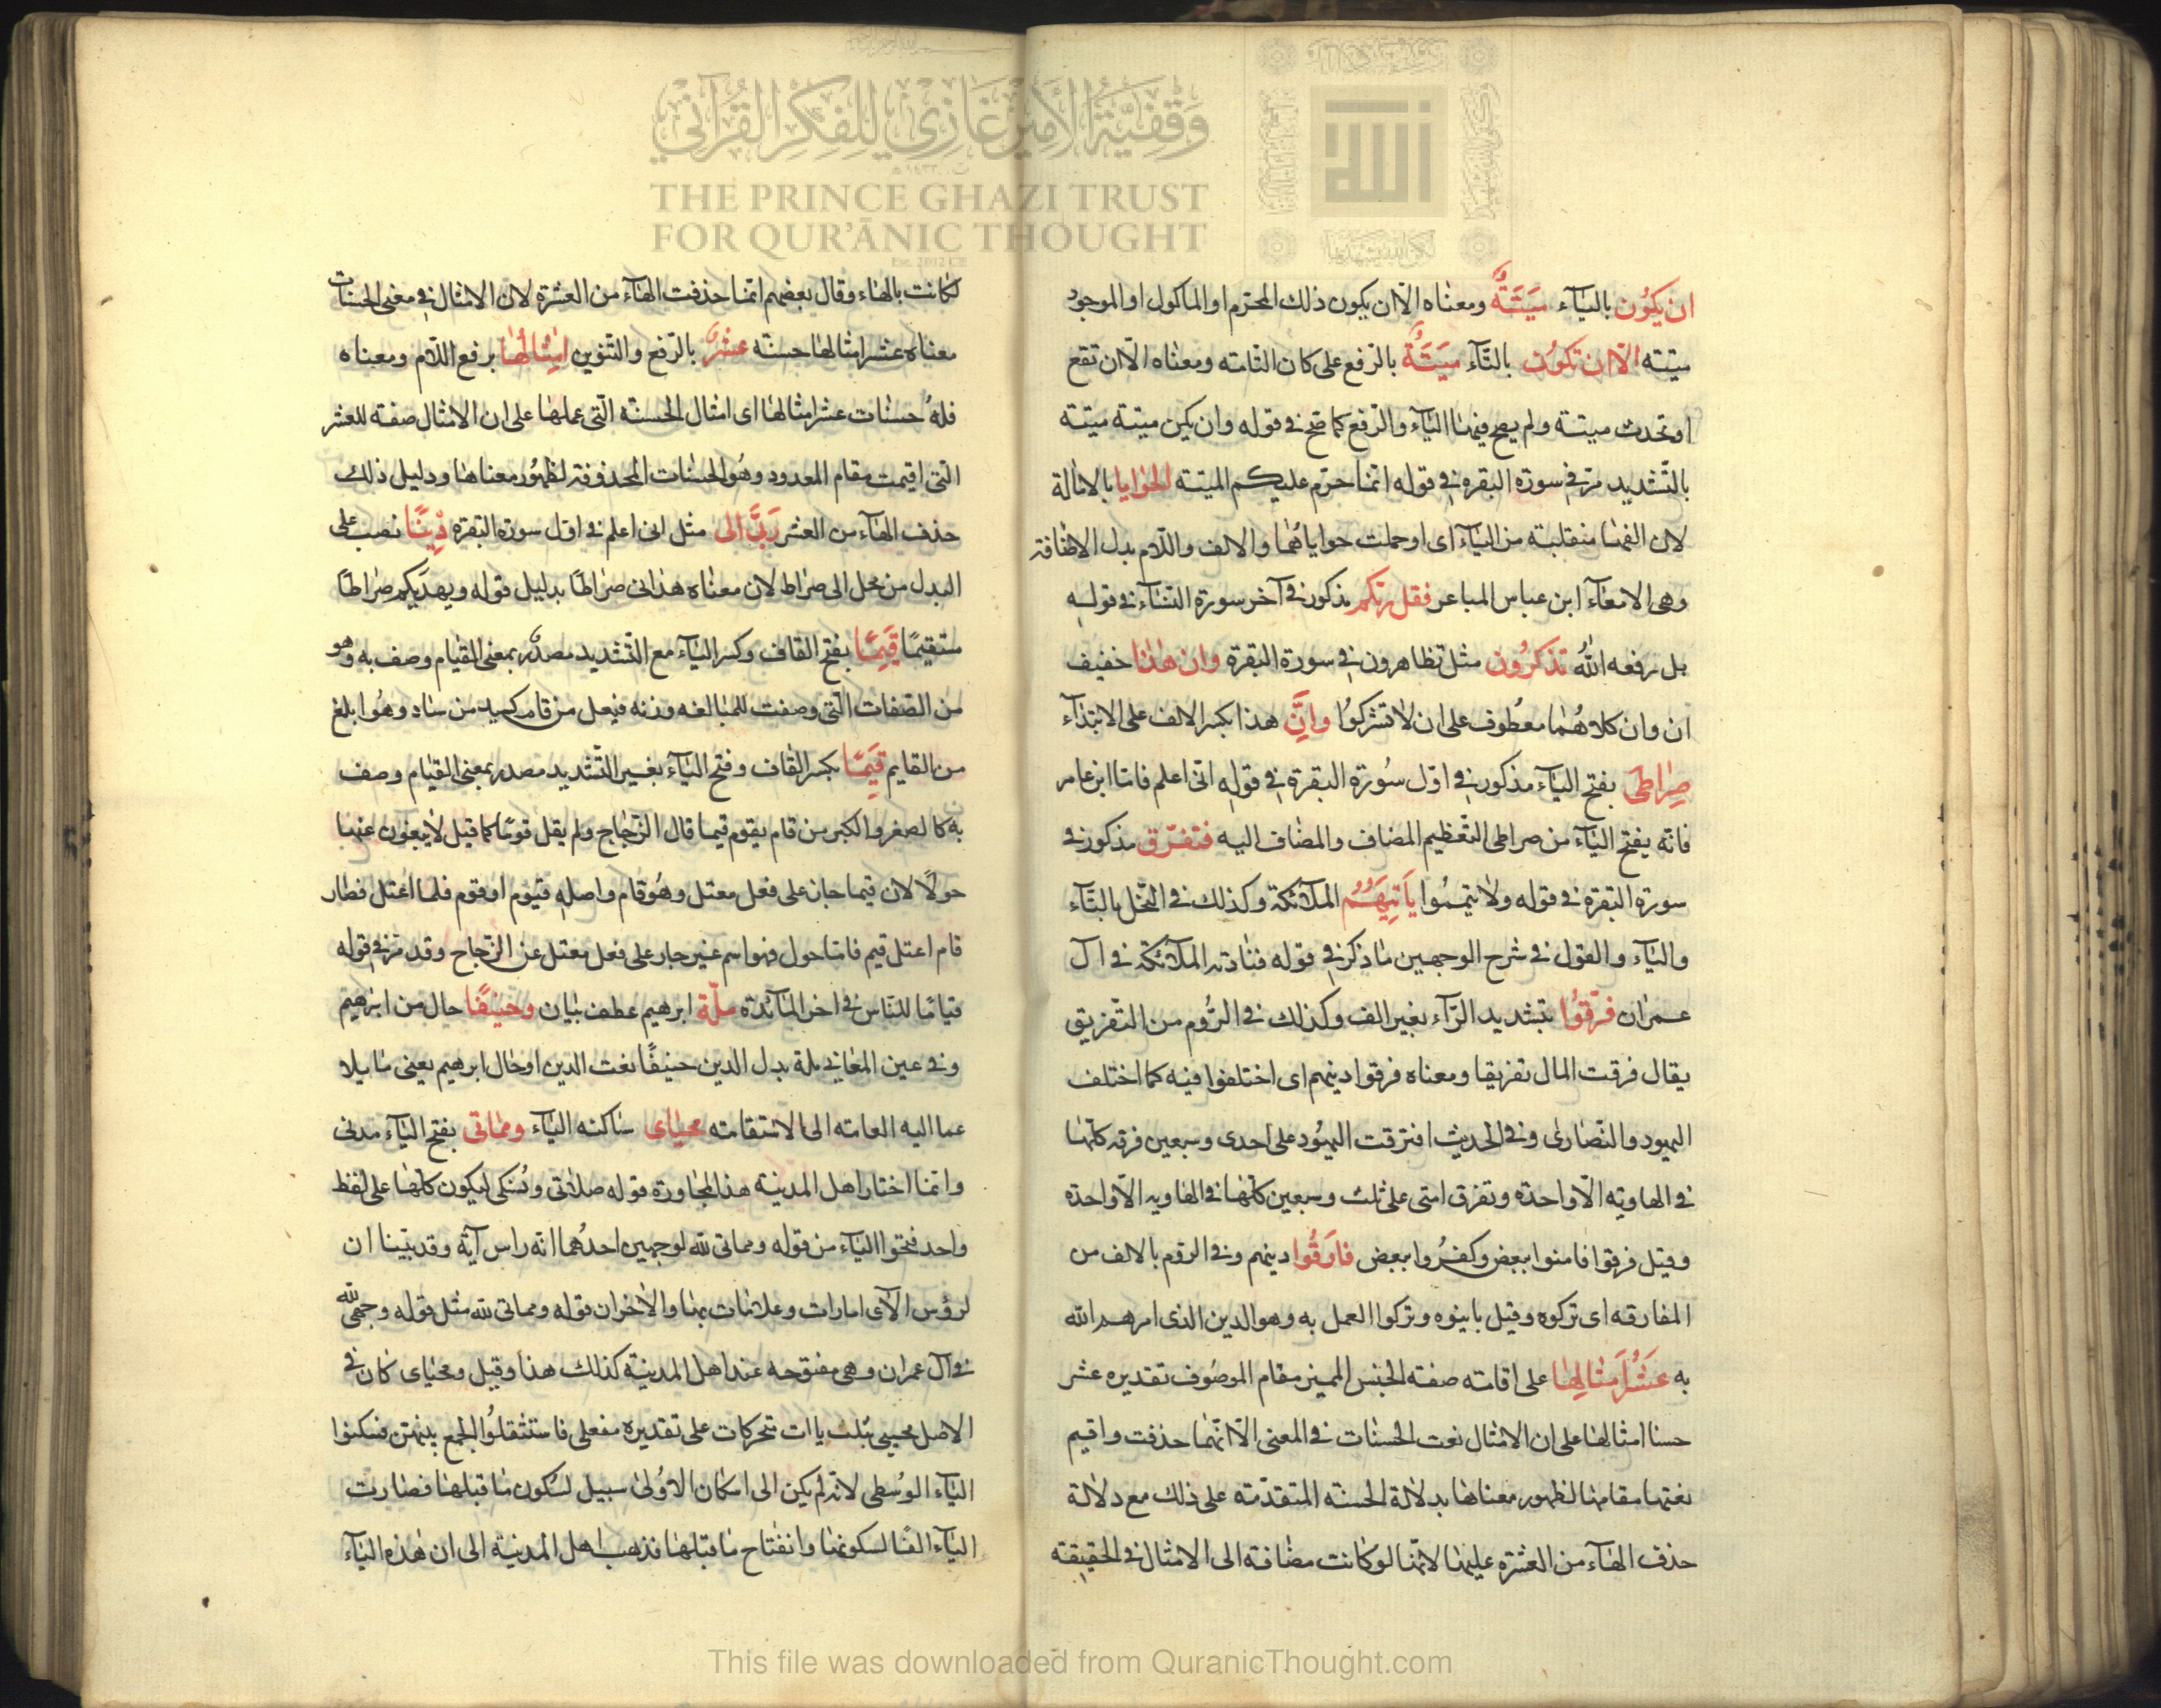 وقفية الأمير غازي للفكر القرآني
THE PRINCE GHAZI TRUST
FOR QUR'ĀNIC THOUGHT
ان يكُون بالياۤء ميتةٌ ومعناه الّا ان يكون ذلك المحترم او الماكول او الموجود
ميتة الّا ان تكون بالتاۤء ميتةٌ بالرّفع على كان التامه ومعناه الّا ان تقع
او تحدث ميتة ولم يصح فيهنا الياۤء والرّفع كما صح في قوله وان يكن ميتة ميتة
بالتّشديد مرّ في سورة البقره في قوله انما حرّم عليكم الميتة الحوايا بالامالة
لان الفها منقلبة من الياۤء اى او حملت حواياهُما والالف واللام بدل الاضافة
وهى الامعاۤء ابن عباس المباعر فقل ربّكم مذكور في آخر سورة النساۤء في قوله
بل رفعه اللهُ تذكرُون مثل تظاهرون في سورة البقرة وان هٰذا خفيف
ان وان كلاهُما معطُوف على ان لا تشركوُا وانَّ هذا بكسر الالف على الابتداۤء
صِراطىَ بفتح الياۤء مذكور في اوّل سُورة البقرة في قوله انى اعلم فاما ابن عامر
فانّه يفتح الياۤء من صراطى لتعظيم المضاف والمضاف اليه فتفرّق مذكور في
سورة البقرة في قوله ولا تيمموا ياتيهُمُ الملاۤئكة وكذلك في النّحل بالتاۤء
والياۤء والقول في شرح الوجهين ما ذكر في قوله فنادته الملاۤئكة في اٰل
عمران فرّقوُا بتشديد الرّاۤء بغير الف وكذلك في الرُّوم من التفريق
يقال فرقت المال تفريقا ومعناه فرقوا دينهم اى اختلفوا فيه كما اختلف
اليهود والنّصارى وفي الحديث افترقت اليهُود على احدى وسبعين فرقه كلّها
في الهاويه الّا واحدة وتفرق امتى على ثلث وسبعين كلّها في الهاويه الّا واحدة
وقيل فرقوا فامنوا ببعض وكفرُوا ببعض فارَقُوا دينهم وفي الروم بالالف من
المفارقه اى تركوه وقيل باينوه وتركوا العمل به وهو الدين الذى امرهم الله
به عَشْرُ اَمثالِها على اقامته صفة الجنس المميز مقام الموصُوف تقديره عشر
حسنا امثالها على ان الامثال نعت الحسنات في المعنى الّا انّها حذفت واقيم
نعتها مقامها لظهور معناها بدلالة الحسنه المتقدّمه على ذلك مع دلالة
حذف الهاۤء من العشرة عليها لانّها لو كانت مضافة الى الامثال في الحقيقه
لكانت بالهاء وقال بعضهم انما حذفت الهاۤء من العشرة لان الامثال في معنى الحسنات
معناه عشر امثالها حسنة عشرٌ بالرّفع والتنوين امثالُها برفع اللّام ومعناه
فلهُ حسنات عشر امثالها اى امثال الحسنة الّتى عملها على ان الامثال صفه للعشر
التى اقيمت مقام المعدود وهُو الحسنات المحذوفه لظهُور معناها ودليل ذلك
حذف الهاۤء من العشر رَبّىَ الى مثل انى اعلم في اوّل سورة البقرة دِينًا نصب على
البدل من محل الى صراط لان معناه هدانى صراطًا بدليل قوله ويهديكم صراطًا
مستقيمًا قَيِّمًا بفتح القاف وكسر الياۤء مع التّشديد مصدر بمعنى القيام وصف به وهو
من الصّفات التى وصفت للمبالغه وزنه فيعل من قام كسيد من ساد وهُو ابلغ
من القايم قِيَمًا بكسر القاف وفتح الياۤء بغير التّشديد مصدر بمعنى القيام وصف
به كالصغر والكبر من قام يقوم قيما قال الزّجاج ولم يقل قومًا كما قيل لا يبغون عنها
حولًا لان قيما جار على فعل معتل وهُو قام واصله قيوم او قوم فلما اعتل فصار
قام اعتل قيم فاما حول فهو اسم غير جار على فعل معتل عن الزّجاج وقد مرّ في قوله
قيامًا للنّاس في اخر الماۤئدة ملّة ابرهيم عطف بيان وحنيفًا حال من ابرهيم
وفي عين المعاني ملة بدل الدين حنيفًا نعت الدين او حال ابرهيم يعنى مايلا
عما اليه العامه الى الاستقامه محياى ساكنه الياۤء ومماتىَ بفتح الياۤء مدنى
وانّما اختار اهل المدينة هذا لمجاورة قوله صلاتى ونُسكى ليكون كلّها على لفظ
واحد فتحوا الياۤء من قوله ومماتى لله لوجهين احدُهما انه راس آية وقد بيّنا ان
لرؤس الآى امارات وعلامات بها والاخر ان قوله ومماتى لله مثل قوله وجهى لله
في آل عمران وهى مفتوحه عند اهل المدينة كذلك هذا وقيل ومحياى كان في
الاصل محييى بثلث ياات متحركات على تقديره مفعلى فاستثقلوُا الجمع بينهن فسكنوا
الياۤء الوُسطى لانه لم يكن الى اسكان الاوُلى سبيل لسُكون ما قبلها فصارت
الياۤء الفًا لسكونها وانفتاح ما قبلها فذهب اهل المدينة الى ان هٰذه الياۤء
This file was downloaded from QuranicThought.com